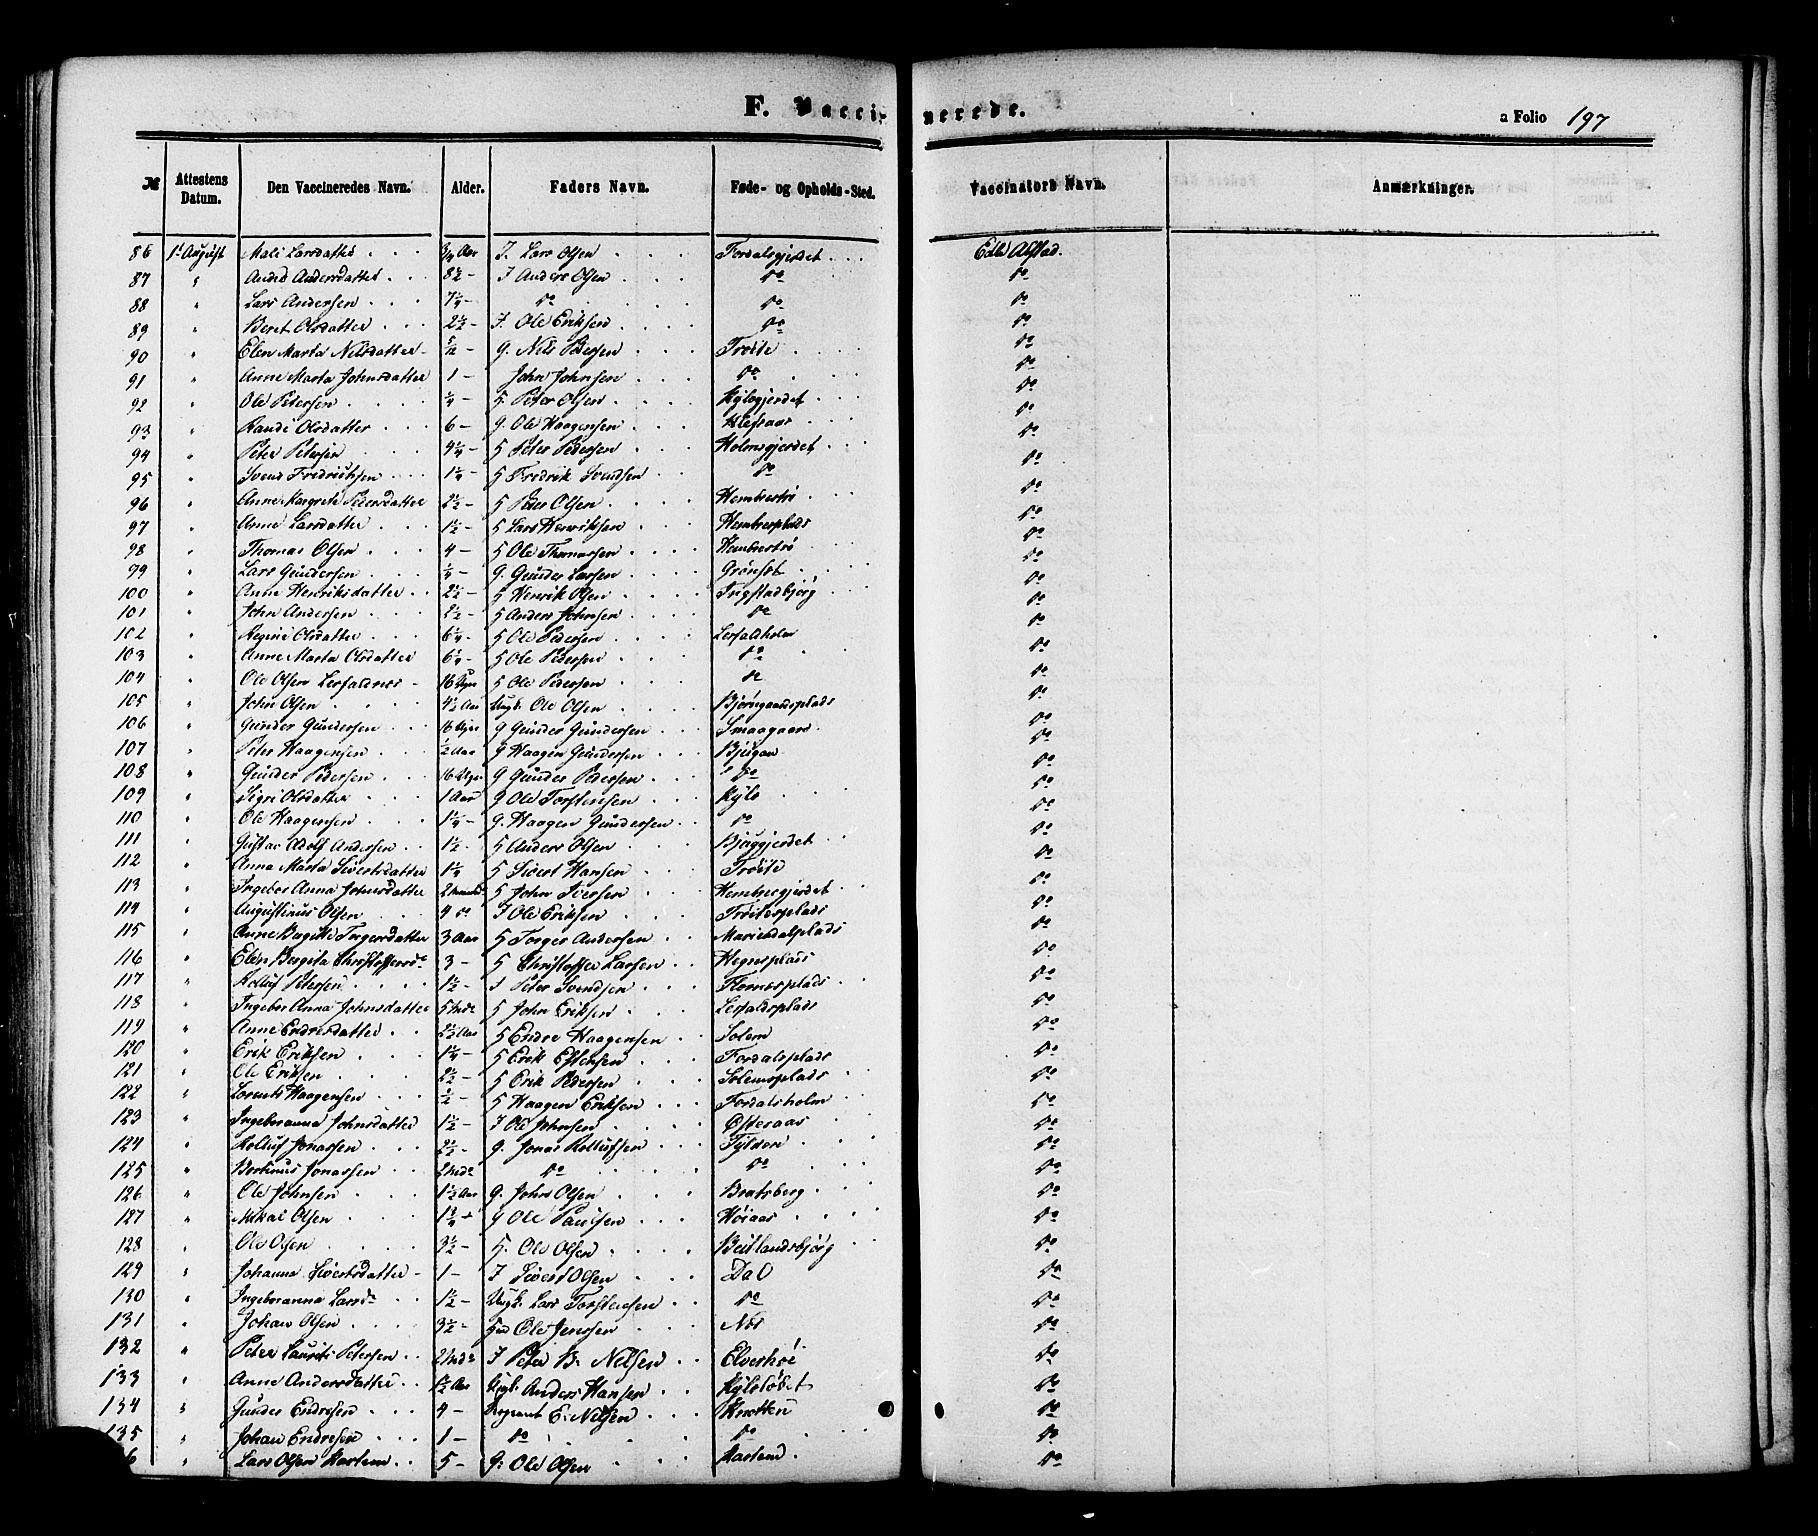 F. Vaccinerede.
a Folio 197
№ Attestens Datum. Den Vaccineredes Navn. Alder. Faders Navn. Føde- og Opholds-Sted. Vaccinators Navn. Anmærkninger.
86 1ste August Mali Larsdatter 3/4 Aar I. Lars Olsen Fordalsgjerdet Alstad.
87 " Andersdatter 8 1/2 - I Anders Olsen Do Do
88 " Lars Andersen 7 1/4 - Do Do Do
89 " Beret Olsdatter 2 1/2 - I. Ole Eriksen Do Do
90 " Elen Marta Nilsdatter 5/12 - G. Nils Pedersen Trøite Do
91 " Anne Marta Johnsdatter 1 - John Johnsen Do Do
92 " Ole Petersen 1/4 - 5. Peter Olsen Kylogjerdet Do
93 " Randi Olsdatter 6 - G. Ole Haagensen Klefsaas Do
94 " Peter Petersen 4 1/4 - 5 Peter Pedersen Holmsgjerdet Do
95 " Svend Fredriksen 1 1/4 - 5 Fredrik Svendsen Do Do
96 " Anne Margrete Pedersdatter 2 1/2 - 5 Peter Olsen Hembretrø Do
97 " Anne Larsdatter 1 1/2 - 5 Lars Henriksen Hembreplads Do
98 " Thomas Olsen 4 - 5 Ole Thomassen Hembretrø Do
99 " Lars Gundersen 1/4 - G. Gunder Larsen Grønset Do
100 " Anne Henriksdatter 2 1/2 - 5 Henrik Olsen Ingstadbjørg Do
101 " John Andersen 2 1/2 - 5 Anders Johnsen Do Do
102 " Regine Olsdatter 6 1/4 - 5 Ole Pedersen Lerfaldholm Do
103 " Anne Marta Olsdatter 6 1/4 - 5 Ole Pedersen Do Do
104 " Ole Olsen Lerfaldnes 16 Uger 5 Ole Pedersen Do Do
105 " John Olsen 4 1/2 Aar Ungk. Ole Olsen Bjørngaardsplads Do
106 " Gunder Gundersen 16 Uger G Gunder Gundersen Smaagaard Do
107 " Peter Haagensen 1/2 Aar G Haagen Gundersen Bjugan Do
108 " Gunder Pedersen 16 Uger G Gunder Pedersen Do Do
109 " Sigri Olsdatter 1 Aar G Ole Torstensen Kylo Do
110 " Ole Haagensen 1 1/4 - G. Haagen Gundersen Do Do
111 " Gustav Adolf Andersen 1 1/2 - 5 Anders Olsen Bjuggjerdet Do
112 " Anna Marta Sivertsdatter 1 1/4 5 Sivert Hansen Trøite Do
113 " Ingebor Anna Johnsdatter 5 John Iversen Hembregjerdet Do
114 " Augustinus Olsen 4 Do I Ole Eriksen Trøitesplads Do
115 " Anne Torgersdatter 3 Aar 5 Torger Andersen Mariedalplads Do
116 " Elen Bergita Christoffersd. 3 - 5 Christoffer Larsen Hegnsplads Do
117 " Rolluf Petersen 1 1/2 - I Peter Svendsen Flornesplads Do
118 " Ingebor Anna Johnsdatter 5 Mdr 5 John Eriksen Lerfaldsplads Do
119 " Anne Endresdatter 2 1/2 Aar 5 Endre Haagensen Solem Do
120 " Erik Eriksen 1 1/4 - 5 Erik Estensen Fordalsplads Do
121 " Ole Eriksen 2 1/2 - 5 Erik Pedersen Solemsplads Do
122 " Lorents Haagensen 1/2 - 5 Haagen Eriksen Fordalsholm Do
123 " Ingeboranna Johnsdatter 1 1/2 - I Ole Johnsen Østeraas Do
124 " Rolluf Jonassen 2 1/2 - G. Jonas Rollufsen Tylden Do
125 " Bertinus Jonassen 2 Mdr Do Do Do
126 " Ole Johnsen 1 1/2 Aar G. John Olsen Bratsberg Do
127 " Mikal Olsen 1 3/4 - G Ole Paulsen Høiaas Do
128 " Ole Olsen 3 1/2 - 5. Ole Olsen Beitlandsbjørg Do
129 " Johanna Sivertsdatter 1 - I Sivert Olsen Dal Do
130 " Ingeboranna Larsd. 1 1/2 - Ungk. Lars Torstensen Do Do
131 " Johan Olsen 3 1/2 - Ole Jenssen Nes Do
132 " Peter Laurits Petersen 2 Mdr I Peter B. Nilsen Elverhøi Do
133 " Anne Andersdatter 1 1/2 Aar Ungk. Anders Hansen Do
134 " Gunder Endresen 4 - Sergeant E. Nilsen Knotten Do
135 " Johan Endresen 1 - Do Do Do
6 " Lars Olsen Kartem 5 - G. Ole Olsen Kartem Do